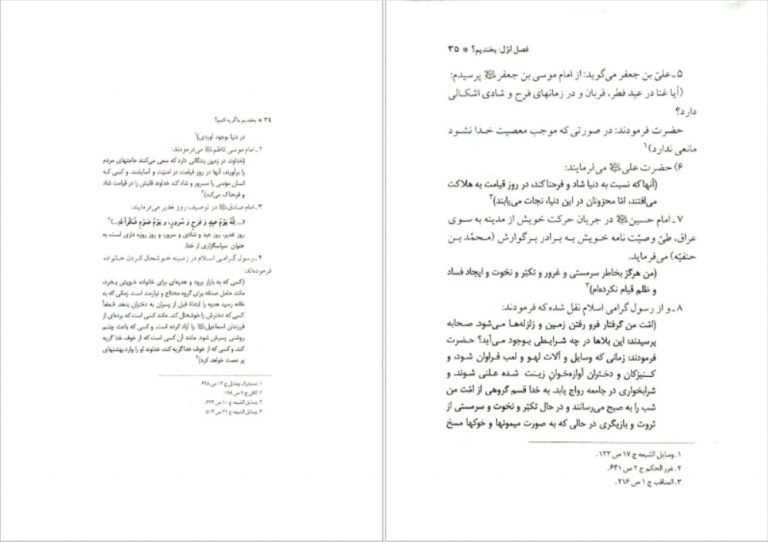 ۳۴ * بخندیم یا گریه کنیم؟
در دنیا بوجود آوردی)¹
۲ـ امام موسی کاظم ﷺ می‌فرمودند:
(خداوند در زمین بندگانی دارد که سعی می‌کنند حاجتهای مردم
را برآورند، آنها در روز قیامت در امنیّت و آسایشند. و کسی که
انسان مؤمنی را مسرور و شاد کند خداوند قلبش را در قیامت شاد
و فرحناک می‌کند)²
۳ـ امام صادق ﷺ در توصیف روز غدیر می‌فرمایند:
(... إنَّهُ یَوْمُ عیدٍ وَ فَرَحٍ وَ سُرورٍ، وَ یَوْمُ صَوْمٍ شُکْراً لِلّهِ...)³
روز غدیر، روز عید و شادی و سرور، و روز روزه داری است، به
عنوان سپاسگزاری از خدا.
۴ـ رسول گرامی اسلام در زمینه خوشحال کردن خانواده
فرموده‌اند:
(کسی که به بازار برود و هدیه‌ای برای خانواده خویش بخرد،
مانند حامل صدقه برای گروه محتاج و نیازمند است. زمانی که به
خانه رسید هدیه را ابتداءً قبل از پسران به دختران بدهد. قطعاً
کسی که دخترش را خوشحال کند، مانند کسی است که برده‌ای از
فرزندان اسماعیل ﷺ را آزاد کرده است. و کسی که باعث چشم
روشنی پسرش شود، مانند آن کسی است که از خوف خدا گریه
کند، و کسی که از خوف خدا گریه کند، خداوند او را وارد بهشتهای
پر نعمت خواهد کرد)⁴
۱. مستدرک وسایل ج ۱۲ ص ۳۹۸.
۲. کافی ج ۲ ص ۱۹۸
۳. وسایل الشیعه ج ۱۰ ص ۴۴۳.
۴. وسایل الشیعه ج ۲۱ ص ۵۱۴
فصل اوّل: بخندیم؟ * ۳۵
۵ـ علیّ بن جعفر می‌گوید: از امام موسی بن جعفر ﷺ پرسیدم:
(آیا غنا در عید فطر، قربان و در زمانهای فرح و شادی اشکالی
دارد؟
حضرت فرمودند: در صورتی که موجب معصیت خدا نشود
مانعی ندارد)¹
۶) حضرت علی ﷺ می‌فرمایند:
(آنها که نسبت به دنیا شاد و فرحناکند، در روز قیامت به هلاکت
می‌افتند، امّا محزونان در این دنیا، نجات می‌یابند)²
۷ـ امام حسین ﷺ در جریان حرکت خویش از مدینه به سوی
عراق، طیّ وصیّت نامه خویش به برادر بزرگوارش (محمّد بن
حنفیّه) می‌فرماید.
(من هرگز بخاطر سرمستی و غرور و تکبّر و نخوت و ایجاد فساد
و ظلم قیام نکرده‌ام)³
۸ـ و از رسول گرامی اسلام نقل شده که فرمودند:
(امّت من گرفتار فرو رفتن زمین و زلزله‌ها می‌شود. صحابه
پرسیدند: این بلاها در چه شرایطی بوجود می‌آید؟ حضرت
فرمودند: زمانی که وسایل و آلات لهو و لعب فراوان شود، و
کنیزکان و دختران آوازه‌خوان زینت شده علنی شوند. و
شرابخواری در جامعه رواج یابد. به خدا قسم گروهی از امّت من
شب را به صبح می‌رسانند و در حال تکبّر و نخوت و سرمستی از
ثروت و بازیگری در حالی که به صورت میمونها و خوکها مسخ
۱ـ وسایل الشیعه ج ۱۷ ص ۱۲۲.
۲ـ غرر الحکم ج ۲ ص ۶۴۱.
۳ـ المناقب ج ۱ ص ۲۱۶.